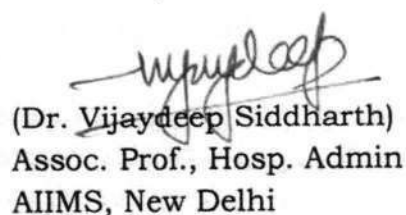 Vijaydeep
(Dr. Vijaydeep Siddharth)
Assoc. Prof., Hosp. Admin
AIIMS, New Delhi